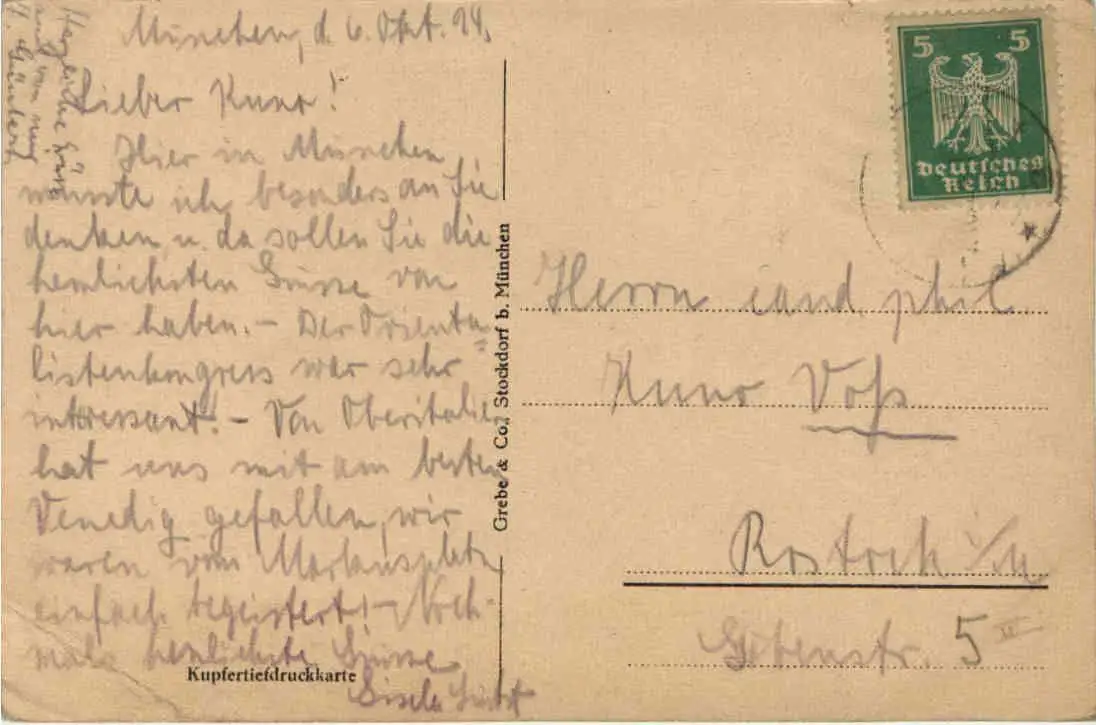 München, d. 6. Okt. 24.
Lieber Kuno!
Hier in München
musste ich besonders an Sie
denken u. da sollen Sie die
herzlichsten Grüsse von
hier haben. – Der Orienta-
listenkongress war sehr
interessant! – Von Oberitalien
hat uns mit am besten
Venedig gefallen, wir
waren vom Markusplatz
einfach begeistert! – Noch-
mals herzlichste Grüsse
Gisela
Herzliche Grüsse
auch von mir
Kupfertiefdruckkarte
Grebe & Co., Stockdorf b. München
5 5
Deutsches
Reich
Herrn cand. phil.
Kuno Voß
Rostock i/M
5 III